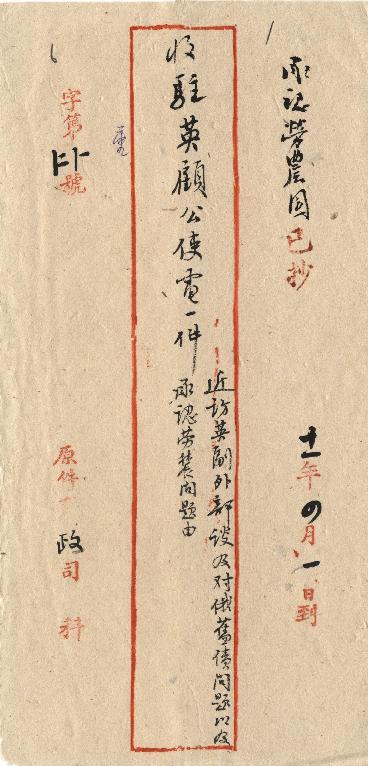 承認勞農国 已抄
十一年四月一日到
收駐英顧公使電一件
近訪英副外部談及对俄舊債問題以及
承認労農问题由
字第 号
原件一 政司 科